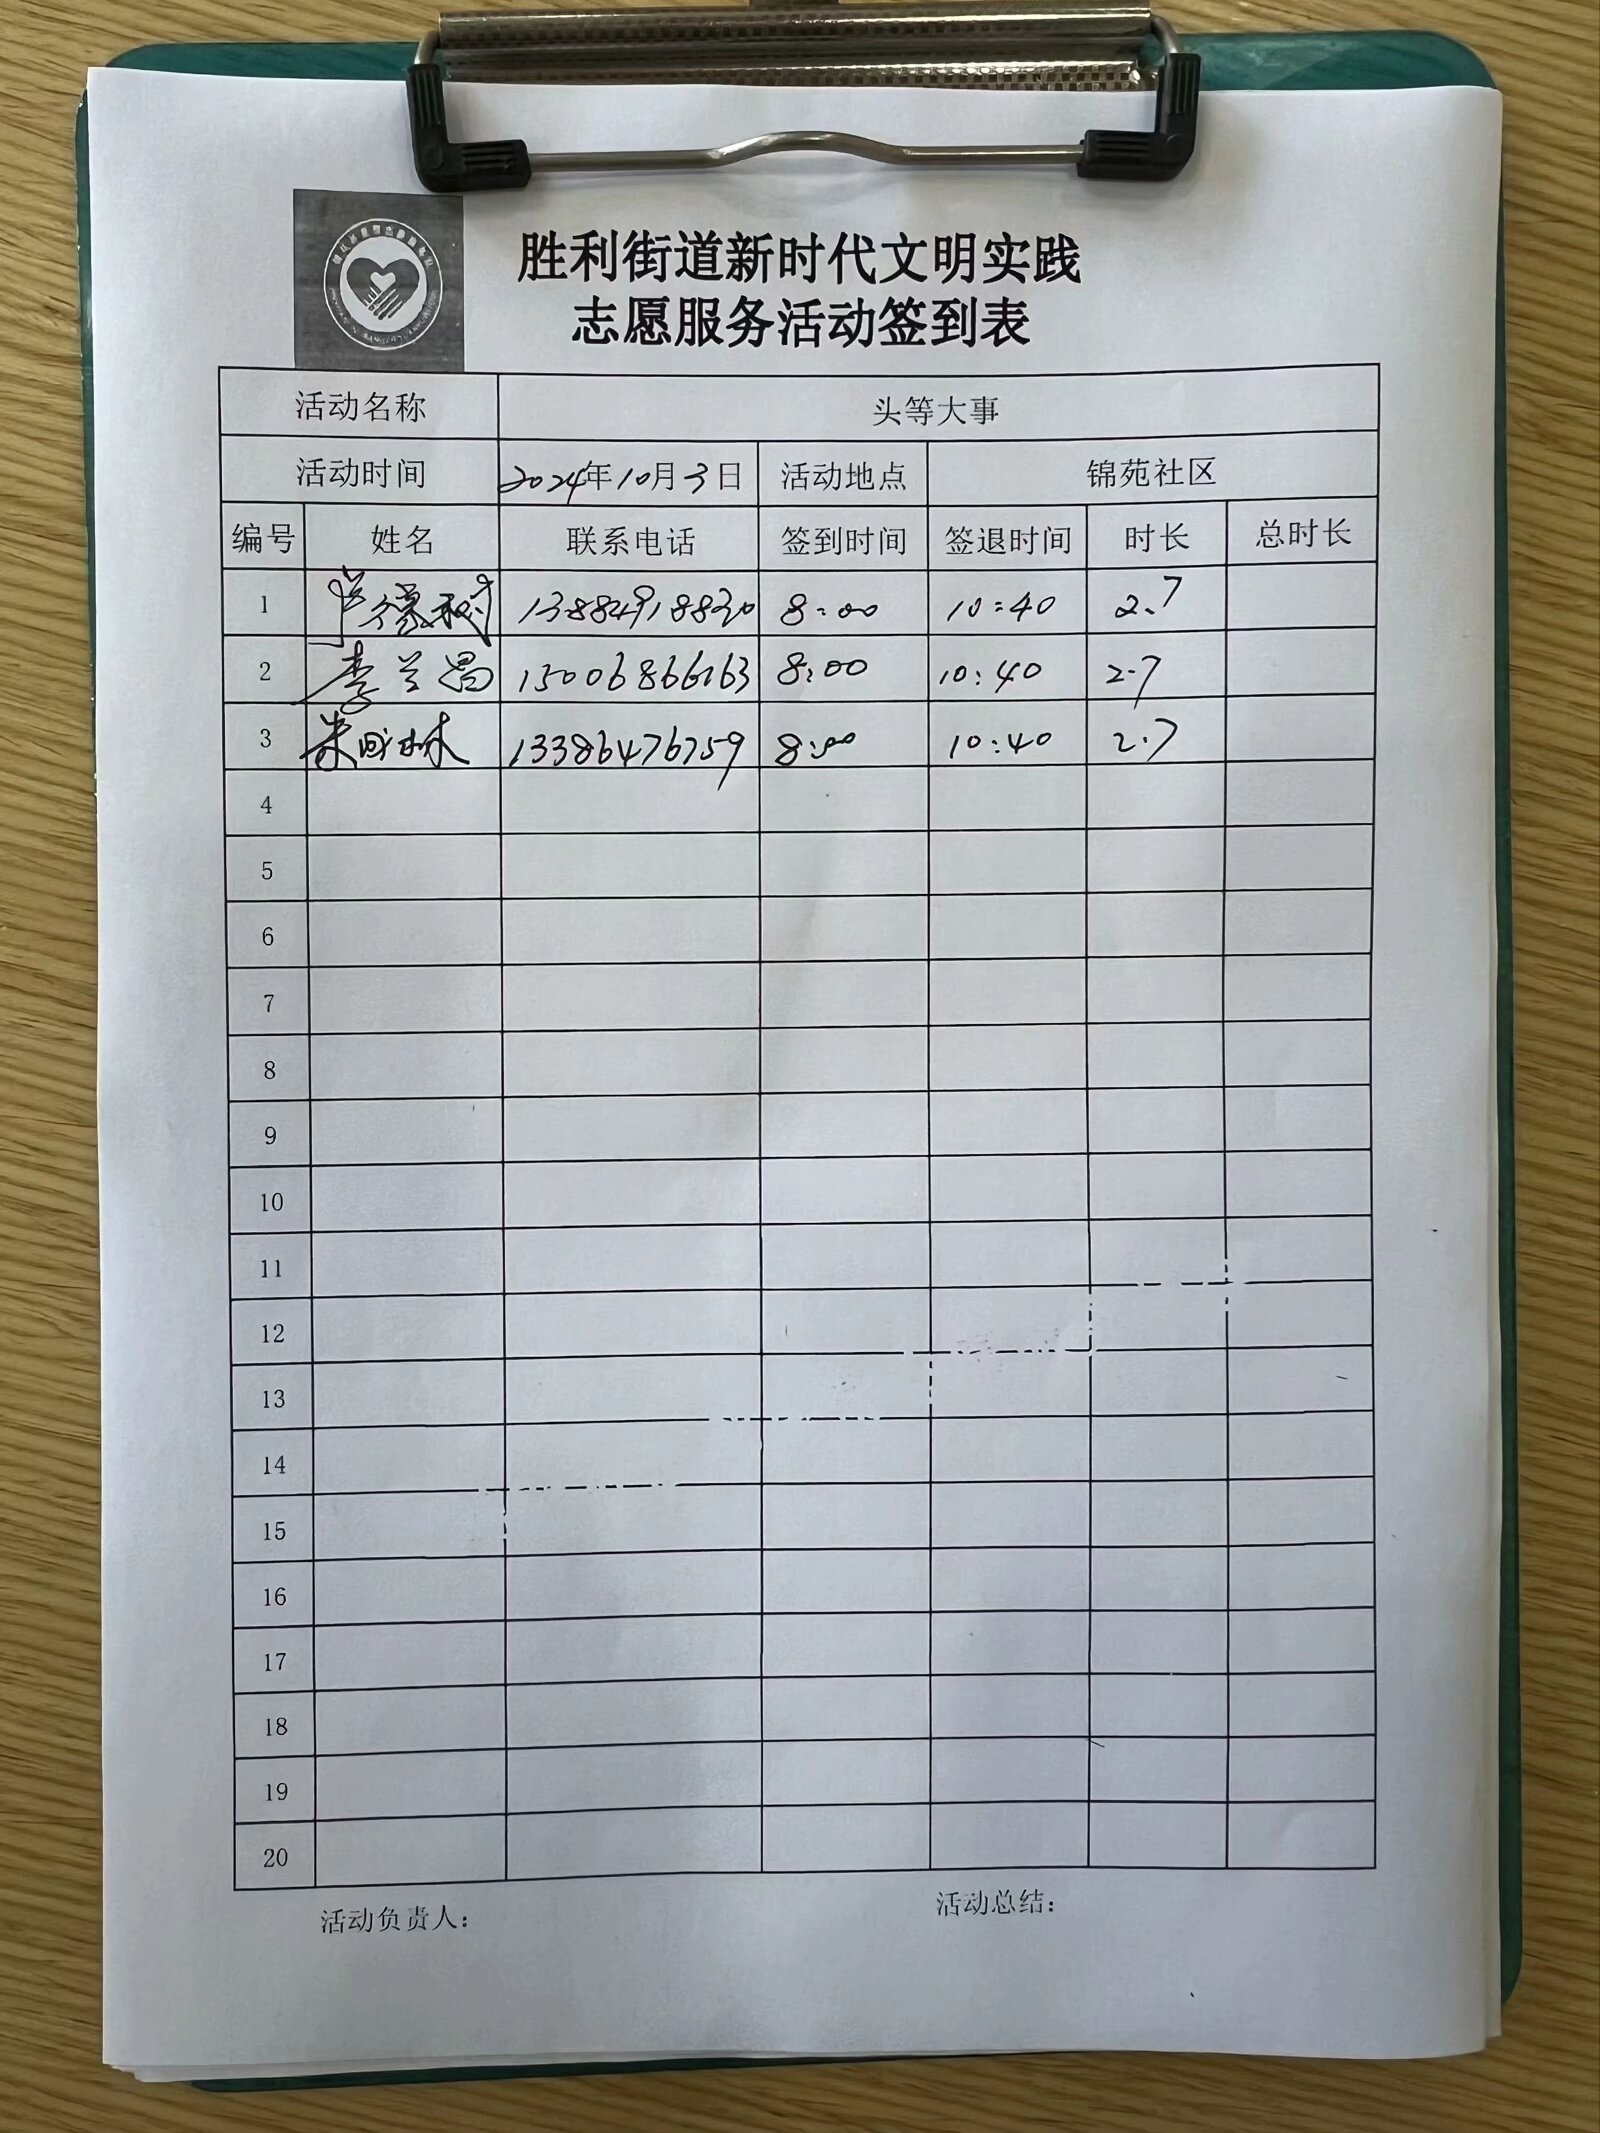 胜利街道新时代文明实践
志愿服务活动签到表
活动名称 头等大事
活动时间 2024年10月3日 活动地点 锦苑社区
编号 姓名 联系电话 签到时间 签退时间 时长 总时长
1 13884918830 8:00 10:40 2.7
2 李兰昌 15006866163 8:00 10:40 2.7
3 13386476759 8:00 10:40 2.7
4
5
6
7
8
9
10
11
12
13
14
15
16
17
18
19
20
活动负责人： 活动总结：